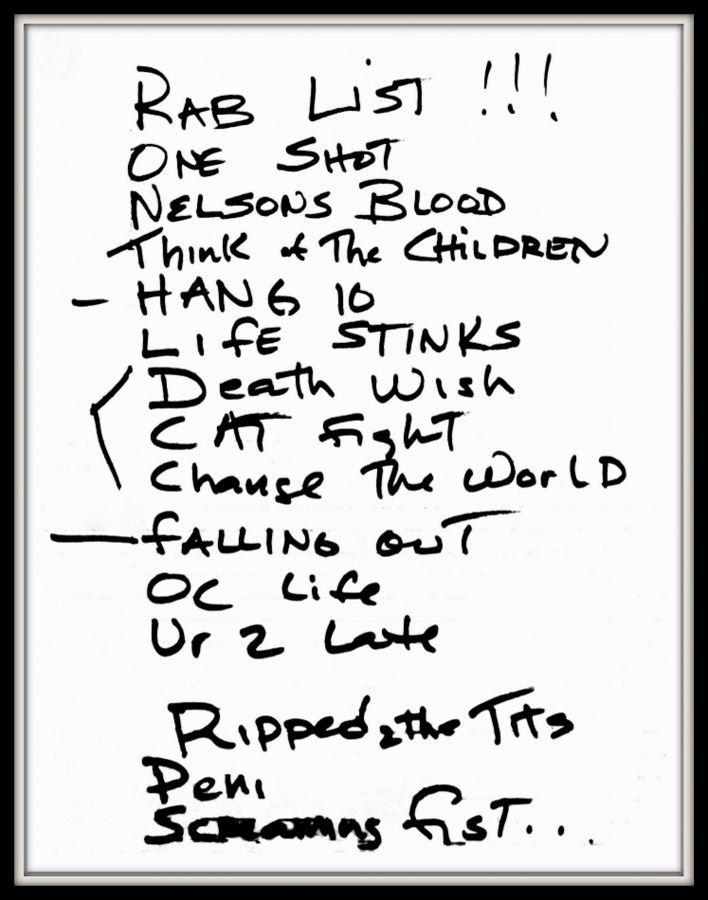 RAB LiST !!!
ONE SHOT
NELSONS BLOOD
Think of The CHiLDREN
- HANG 10
LIfE STINKS
Death Wish
CAT fighT
Change The WorLD
- fALLING OuT
OC Life
Ur 2 Late
Ripped 2 the Tits
Peni
Screaming fisT...